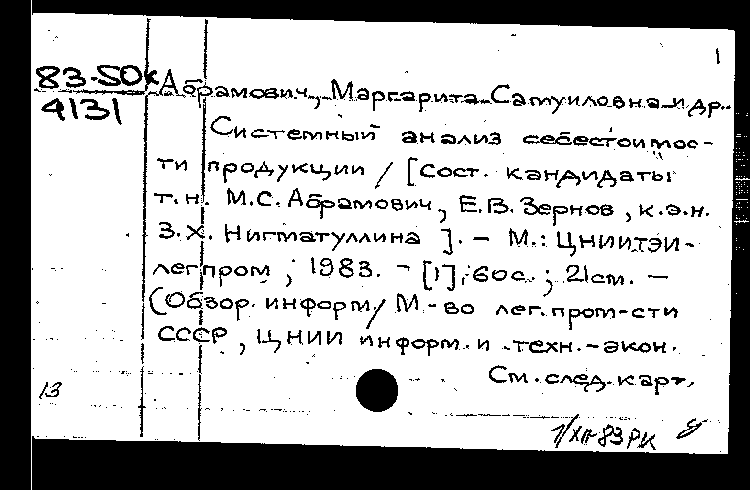 1
83-50к Абрамович, Маргарита Самуиловна и др.
4131
Системный анализ себестоимос-
ти продукции / [Сост. кандидаты
т.н. М.С. Абрамович, Е.В. Зернов, к.э.н.
З.Х. Нигматуллина]. - М.: ЦНИИТЭИ-
легпром, 1983. - [1], 60с.; 21см. -
(Обзор. информ. / М-во лег. пром-сти
СССР, ЦНИИ информ. и техн.-экон.
См. след. карт.
13
1/XII-83 РК